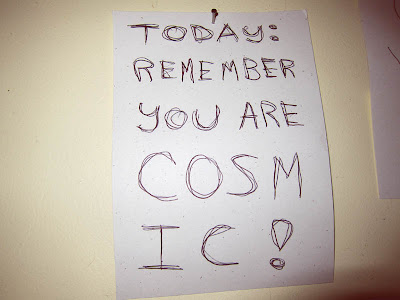 TODAY:
REMEMBER
YOU ARE
COSM
IC!